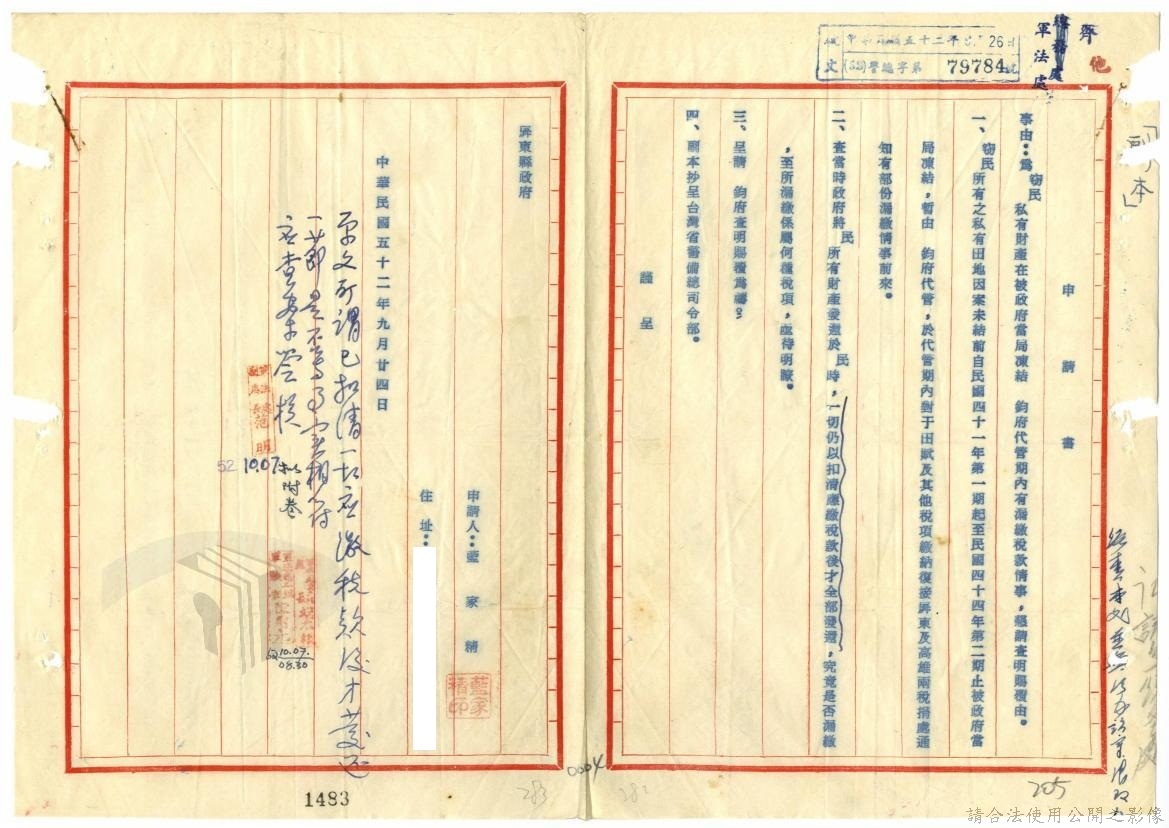 齊
他
總務處
軍法處
收文
中華民國五十二年9月26日
(52)警總字第79784號
「副本」
申請書
事由：為窃民私有財產在被政府當局凍結　鈞府代管期內有漏繳稅款情事，懇請查明賜覆由。
一、窃民所有之私有田地因案未結前自民國四十一年第一期起至民國四十四年第二期止被政府當
局凍結，暫由　鈞府代管，於代管期內對于田賦及其他稅項繳納復接屏東及高雄兩稅捐處通
知有部份漏繳情事前來。
二、查當時政府將民所有財產發還於民時，一切仍以扣清應繳稅款後才全部發還，究竟是否漏繳
，至所漏繳係屬何種稅項，亟待明瞭。
三、呈請　鈞府查明賜覆為禱。
四、副本抄呈台灣省警備總司令部。
謹呈
屏東縣政府
申請人：藍家精
藍家精印
住址：
中華民國五十二年九月廿四日
原文所謂已扣清一切應繳稅款後才發還
一節是否與事實相符
應查案簽核
52 10.07.
擬附卷
10.07.
08.30
1483
0004
283
282
285
請合法使用公開之影像